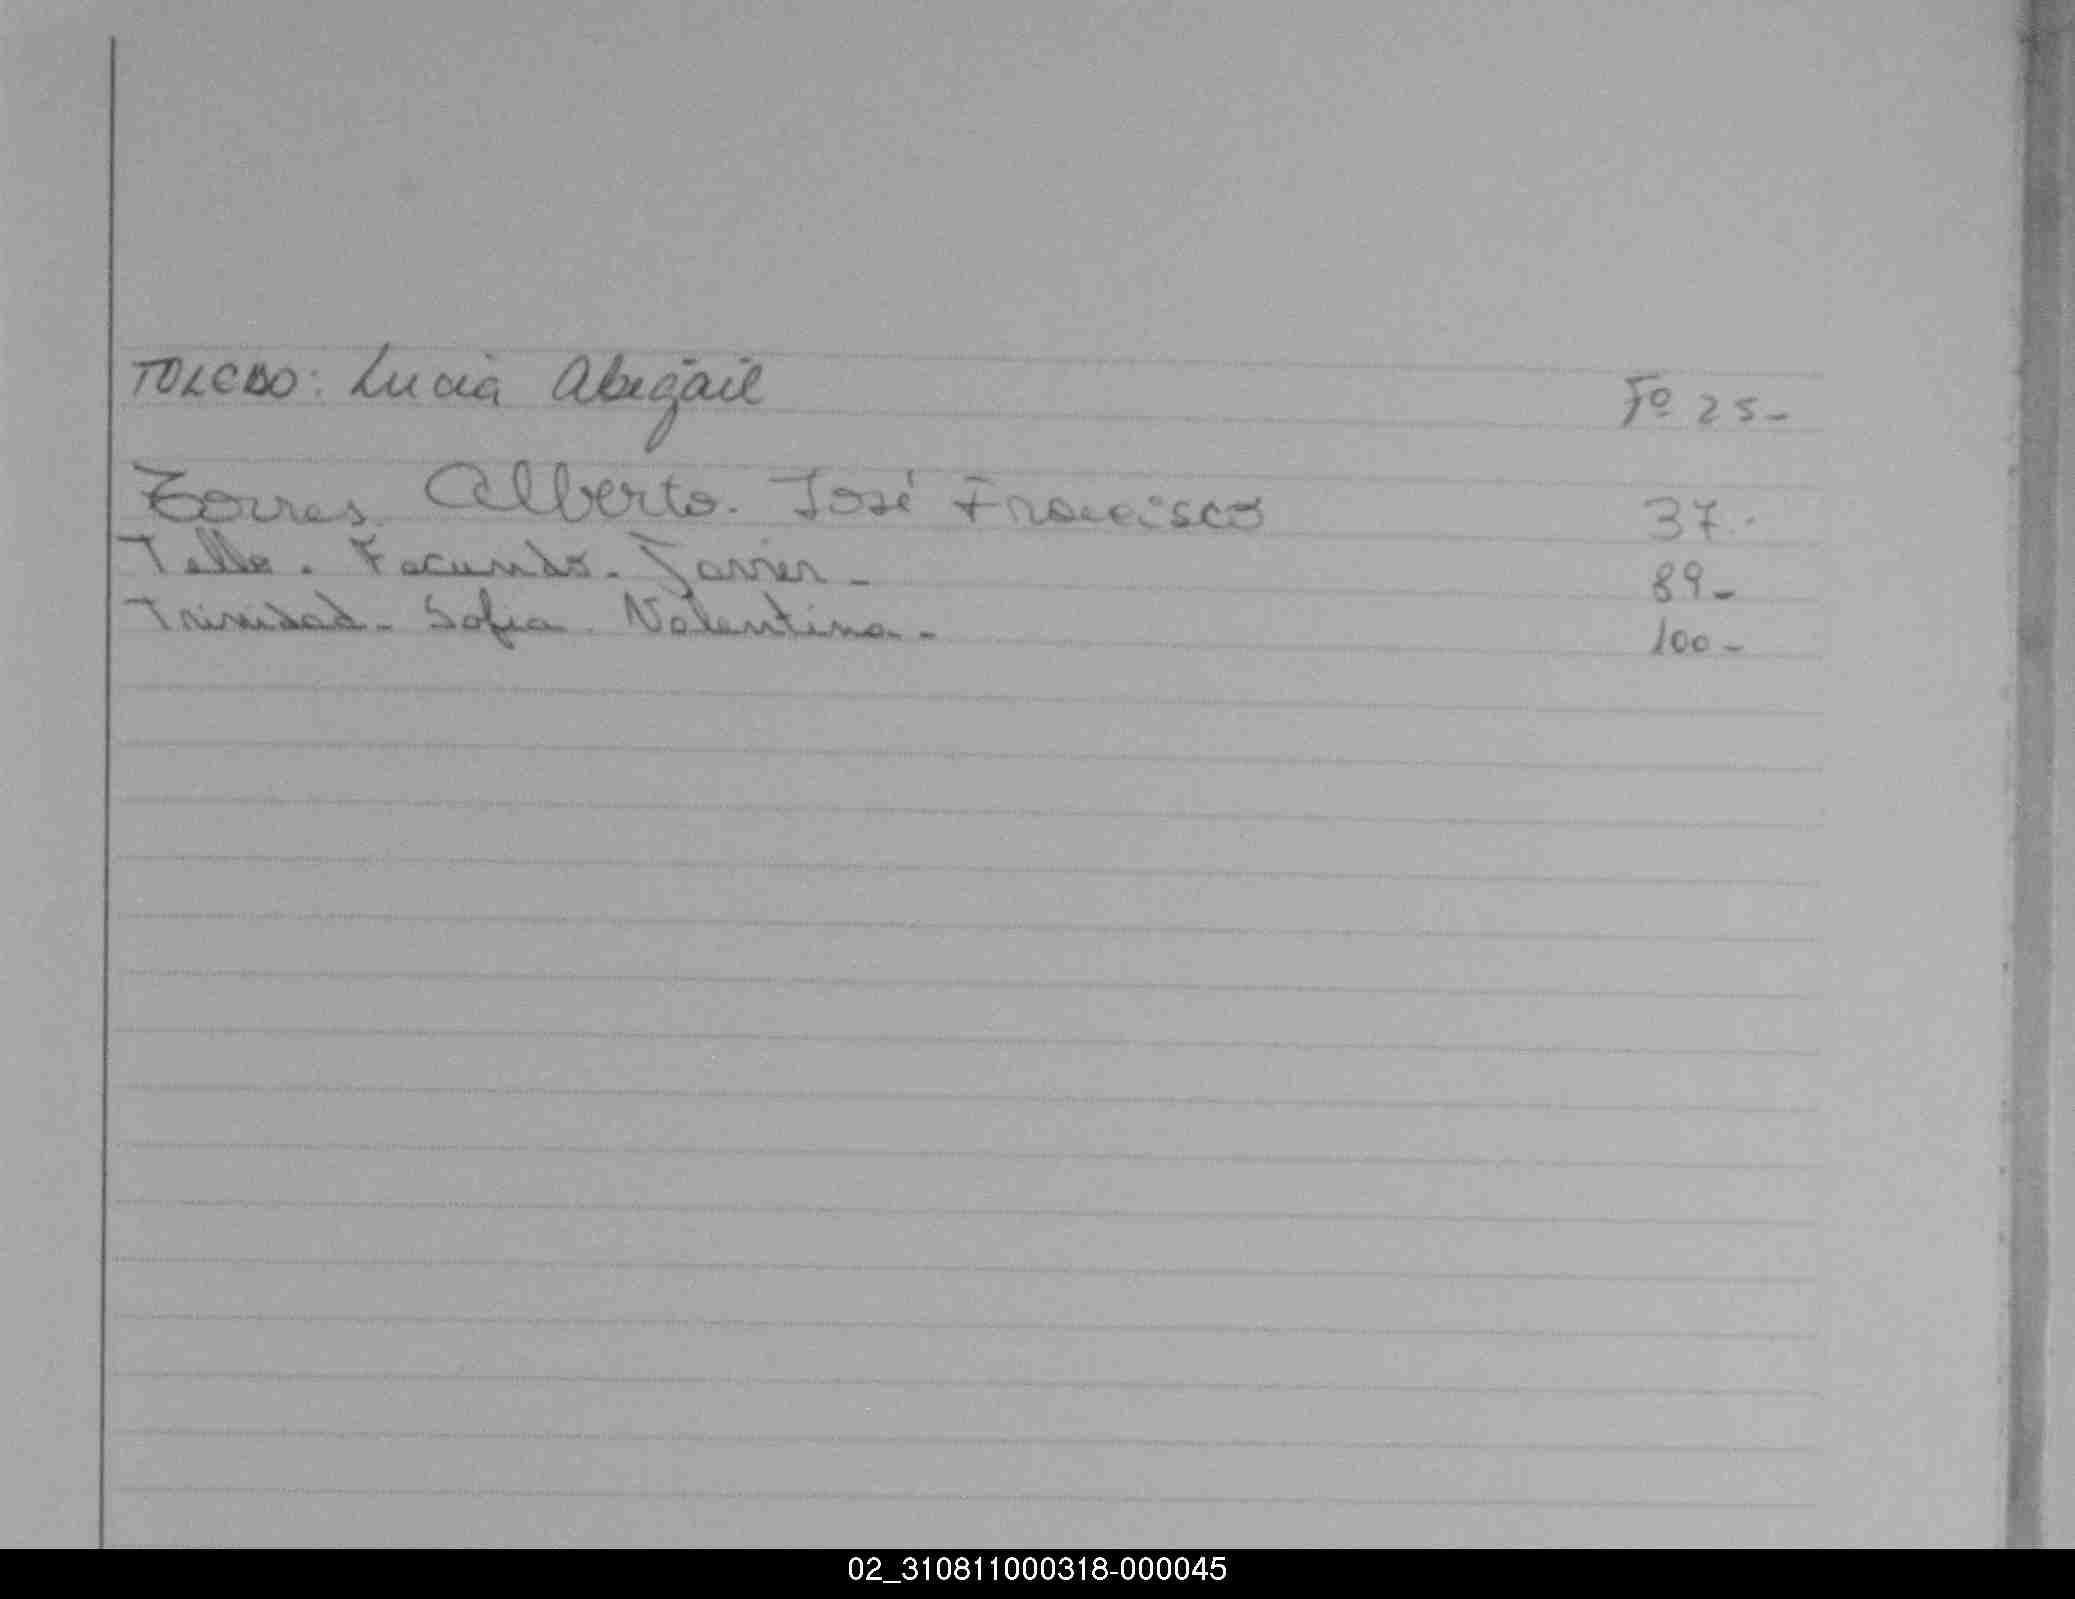 TOLEDO: Lucia Abigail Fº 25-
Torres. Alberto. José Francisco 37.-
Tello. Facundo. Javier - 89-
Trinidad - Sofia. Valentina - 100-
02_310811000318-000045